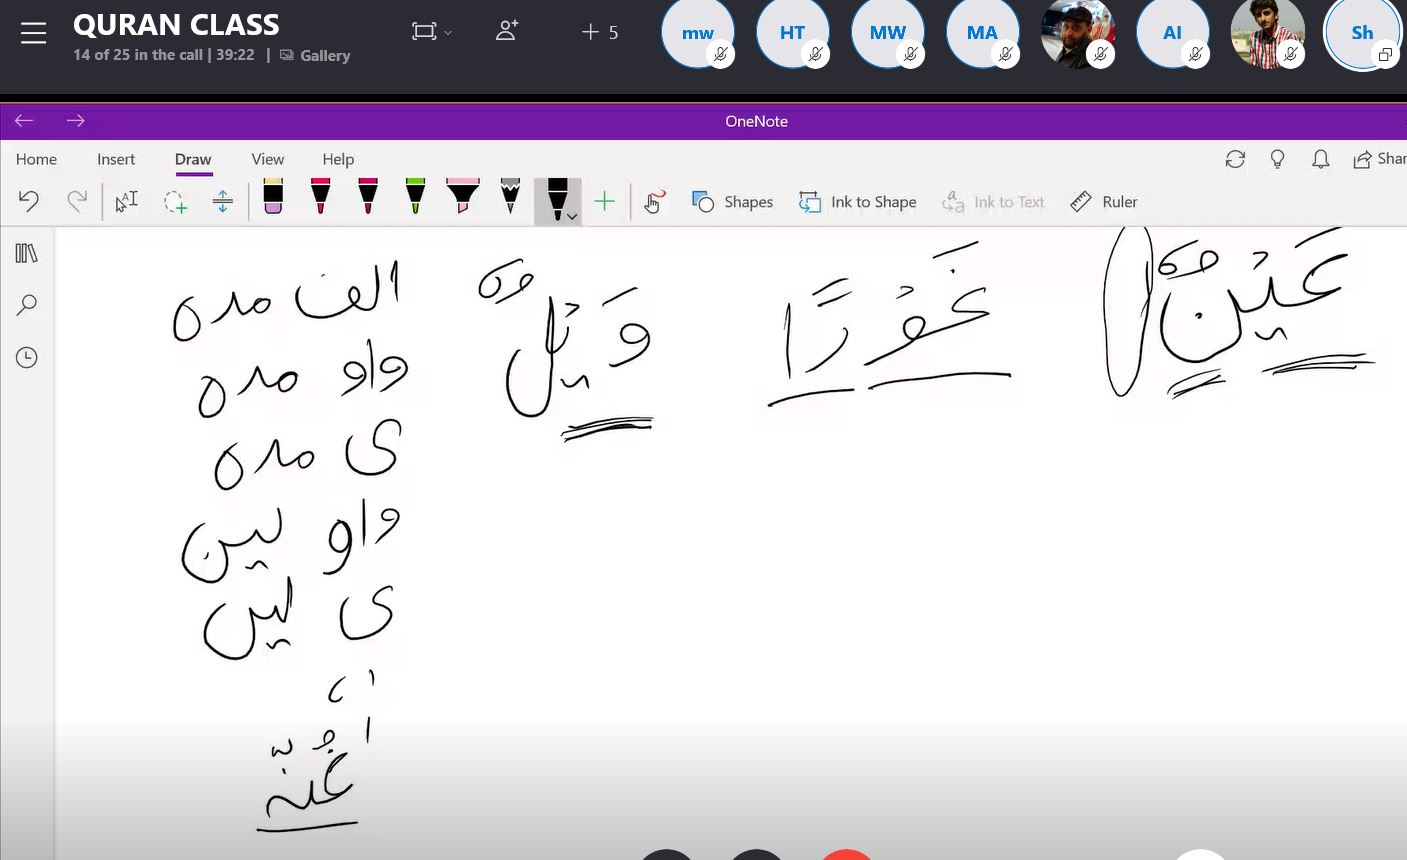 QURAN CLASS
14 of 25 in the call | 39:22 | Gallery
+ 5
mw HT MW MA AI Sh
OneNote
Home Insert Draw View Help
Shar
Shapes Ink to Shape Ink to Text Ruler
عَيْنٌ
غَفْرًا
وَيْلٌ
الف مدہ
واو مدہ
ی مدہ
واو لین
ی لین
غنہ